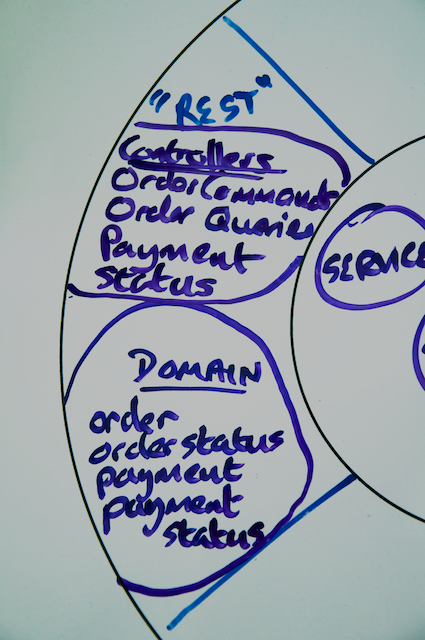 "REST"
Controllers
Order Commands
Order Queries
Payment
Status
SERVICE
DOMAIN
order
order status
payment
payment
status